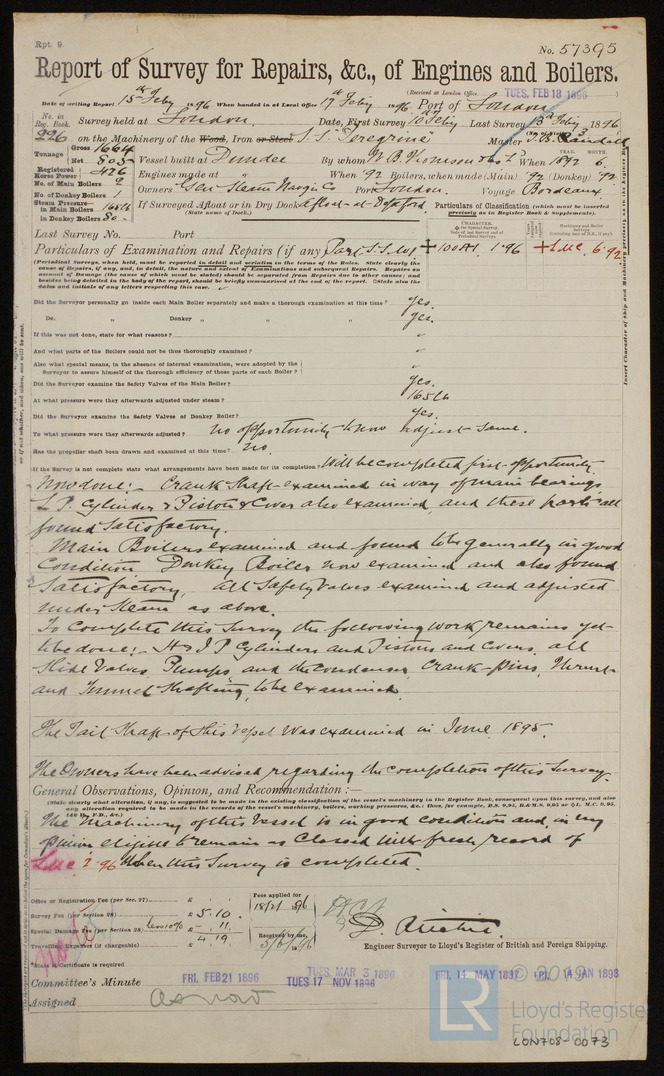 Rpt. 9.
No. 57395
Report of Survey for Repairs, &c., of Engines and Boilers.
(Received at London Office TUES. FEB 18 1896 )
Date of writing Report 15th Feby 1896 When handed in at Local Office 17th Feby 1896 Port of London
No. in Reg. Book. Survey held at London Date, First Survey 10th Feby Last Survey 13th Feby 1896
226 on the Machinery of the Wood, Iron or Steel S.S. "Peregrine" Master
Tonnage Gross 1664
Net 805 Vessel built at Dundee By whom W. B. Thomson & Co. Ld. When 1892 6
YEAR. MONTH.
Registered Horse Power 426 Engines made at " When '92 Boilers, when made (Main) '92 (Donkey) '92
No. of Main Boilers 2
No. of Donkey Boilers 1 Owners Genl Steam Navign Co Port London Voyage Bordeaux
Steam Pressure— in Main Boilers 165 lb
in Donkey Boilers 80 If Surveyed Afloat or in Dry Dock Afloat at Deptford
(State name of Dock.)
Particulars of Classification (which must be inserted precisely as in Register Book & Supplements).
Last Survey No. Port
Particulars of Examination and Repairs (if any) Part S.S. No 1 +100A1 1.96 +LMC 6.92
(Periodical Surveys, when held, must be reported in detail and seriatim in the terms of the Rules. State clearly the
cause of Repairs, if any, and, in detail, the nature and extent of Examinations and subsequent Repairs. Repairs on
account of Damage (the cause of which must be stated) should be separated from Repairs due to other causes; and
besides being detailed in the body of the report, should be briefly summarised at the end of the report. State also the
dates and initials of any letters respecting this case.
Did the Surveyor personally go inside each Main Boiler separately and make a thorough examination at this time? yes.
Do. " Donkey " " " " yes.
If this was not done, state for what reasons? "
And what parts of the Boilers could not be thus thoroughly examined? "
Also what special means, in the absence of internal examination, were adopted by the
Surveyor to assure himself of the thorough efficiency of those parts of each Boiler? "
Did the Surveyor examine the Safety Valves of the Main Boiler? yes.
At what pressure were they afterwards adjusted under steam? 165 lb
Did the Surveyor examine the Safety Valves of Donkey Boiler? yes.
To what pressure were they afterwards adjusted? no opportunity to now adjust same.
Has the propeller shaft been drawn and examined at this time? no.
If the Survey is not complete state what arrangements have been made for its completion? Will be completed first opportunity
Now done:- Crank Shaft examined in way of main bearings
L.P. Cylinder & Piston & Cover also examined, and these parts all
found Satisfactory.
Main Boilers examined and found to be generally in good
Condition Donkey Boiler now examined and also found
Satisfactory, All Safety Valves examined and adjusted
under steam as above.
To Complete this Survey the following work remains yet
to be done:- H & I P Cylinders and Pistons and Covers, all
Slide Valves, Pumps and the Condenser, Crank-Pins, Thrust
and Tunnel Shafting, to be examined.
The Tail Shaft of this vessel was examined in June 1895.
The Owners have been advised regarding the completion of this Survey.
General Observations, Opinion, and Recommendation:—
(State clearly what alteration, if any, is suggested to be made in the existing classification of the vessel's machinery in the Register Book, consequent upon this survey, and also
any alteration required to be made in the records of the vessel's machinery, boilers, working pressures, &c.: thus, for example, B.S. 9,95, B.&M.S. 9,95 or L.M.C. 9,95,
140 lb., F.D., &c.)
The Machinery of this Vessel is in good condition and in my
opinion eligible to remain as Classed with fresh record of
LMC 2.96 When this Survey is completed.
Office or Registration Fee (per sec. 27) £
Survey Fee (per Section 28) £ 5.10.
Special Damage Fee (per Section 28) less 10% £ 11.
4.19
Travelling Expenses (if chargeable) £
Fees applied for
18/2/96
Received by me,
3/3/96
D. Ritchie
Engineer Surveyor to Lloyd's Register of British and Foreign Shipping.
*State if Certificate is required
Committee's Minute FRI. FEB 21 1896 TUES. MAR 3 1896 TUES 17 NOV 1896 FRI. 14 MAY 1897 FRI. 14 JAN 1898
Assigned as now
LR
© 2019
Lloyd's Register
Foundation
LON708-0073